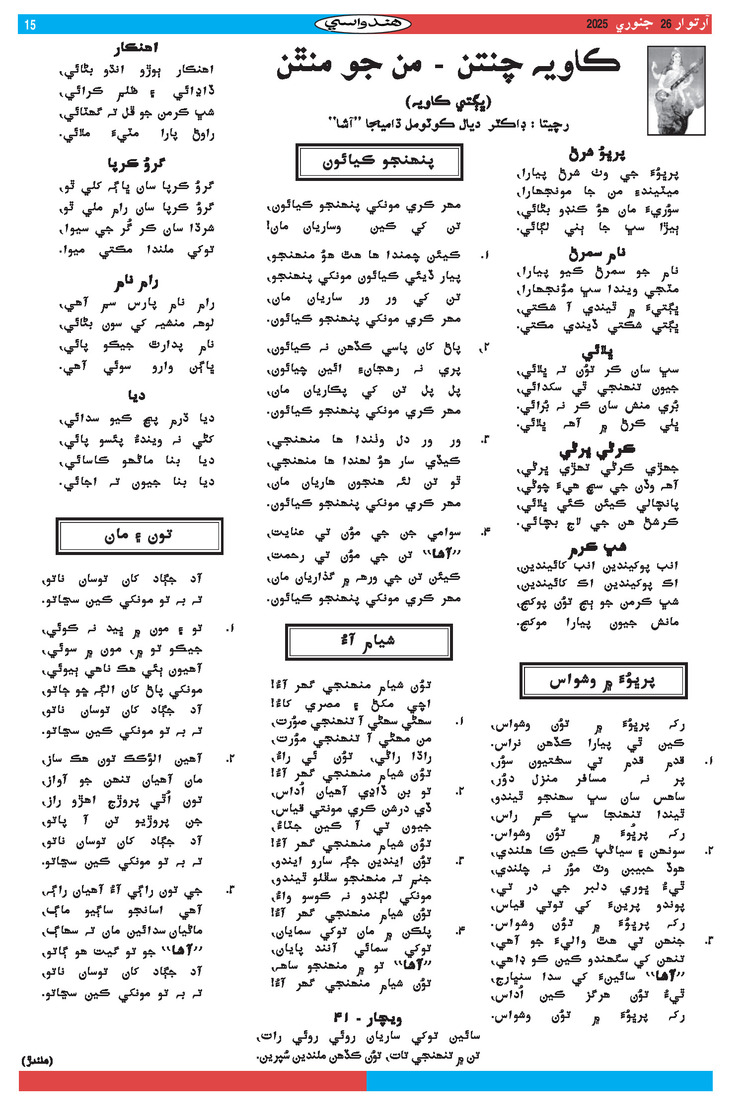 آرتوار 26 جنوري 2025
هندواسي
15
ڪاويه چنتن - من جو منٿن
(ڀڳتي ڪاويه)
رچيتا : ڊاڪٽر ديال ڪوٽومل ڌاميجا "آشا"
پرڀوُ شرڻ
پرڀوُءَ جي وٺ شرڻ پيارا،
ميٽيندءِ من جا مونجهارا،
سوُريءَ مان هوُ ڪنڊو بڻائي،
ٻيڙا سڀ جا ٻني لڳائي.
نام سمرڻ
نام جو سمرڻ ڪيو پيارا،
مٽجي ويندا سڀ موُنجهارا،
ڀڳتيءَ ۾ ٿيندي آ شڪتي،
ڀڳتي شڪتي ڏيندي مڪتي.
ڀلائي
سڀ سان ڪر توُن تہ ڀلائي،
جيون تنهنجي ٿي سڪدائي،
بُري منش سان ڪر نہ بُرائي.
ڀلي ڪرڻ ۾ آهہ ڀلائي.
ڪرڻي ڀرڻي
جهڙي ڪرڻي تهڙي ڀرڻي،
آهہ وڏن جي سچ هيءَ چوڻي،
پانچالي ڪيئن ڪئي ڀلائي،
ڪرشڻ هن جي لاڄ بچائي.
شڀ ڪرم
انب پوکيندين انب کائيندين،
اڪ پوکيندين اڪ کائيندين،
شڀ ڪرمن جو ٻج توُن پوکج،
مانش جيون پيارا موکج.
پرڀوُءَ ۾ وشواس
رک پرڀوُءَ ۾ توُن وشواس،
ڪين ٿي پيارا ڪڏهن نراس.
۱. قدم قدم تي سختيون سوُر،
پر نہ مسافر منزل دوُر،
ساهس سان سڀ سهنجو ٿيندو،
ٿيندا تنهنجا سڀ ڪم راس،
رک پرڀوُءَ ۾ توُن وشواس.
۲. سونهن ۽ سياڻپ ڪين ڪا هلندي،
هوڏ حبيبن وٽ موُر نہ چلندي،
ٿيءُ ڀوري دلبر جي در تي،
پوندو پرينءَ کي توتي قياس،
رک پرڀوُءَ ۾ توُن وشواس.
۳. جنهن تي هٿ واليءَ جو آهي،
تنهن کي سگهندو ڪين ڪو ڊاهي،
"آشا" سائينءَ کي سدا سنڀارج،
ٿيءُ توُن هرگز ڪين اُداس،
رک پرڀوُءَ ۾ توُن وشواس.
پنهنجو ڪيائون
مهر ڪري مونکي پنهنجو ڪيائون،
تن کي ڪين وساريان مان!
۱. ڪيئن چمندا ها هٿ هوُ منهنجو،
پيار ڏيئي ڪيائون مونکي پنهنجو،
تن کي ور ور ساريان مان،
مهر ڪري مونکي پنهنجو ڪيائون.
۲. پاڻ کان پاسي ڪڏهن نہ ڪيائون،
پري نہ رهجانءِ ائين چيائون،
پل پل تن کي پڪاريان مان،
مهر ڪري مونکي پنهنجو ڪيائون.
۳. ور ور دل وٺندا ها منهنجي،
ڪيڏي سار هوُ لهندا ها منهنجي،
ٿو تن لئہ هنجون هاريان مان،
مهر ڪري مونکي پنهنجو ڪيائون.
۴. سوامي جن جي موُن تي عنايت،
"آشا" تن جي موُن تي رحمت،
ڪيئن تن جي ورهہ ۾ گذاريان مان،
مهر ڪري مونکي پنهنجو ڪيائون.
شيام آءُ
توُن شيام منهنجي گهر آءُ!
اچي مکڻ ۽ مصري کاءُ!
۱. سهڻي سهڻي آ تنهنجي صوُرت،
من مهڻي آ تنهنجي موُرت،
راڌا راڻي، توُن ئي راءُ،
توُن شيام منهنجي گهر آءُ!
۲. تو بن ڏاڍي آهيان اُداس،
ڏي درشن ڪري مونتي قياس،
جيون تي آ ڪين جٽاءُ،
توُن شيام منهنجي گهر آءُ!
۳. توُن ايندين جڳہ سارو ايندو،
جنم تہ منهنجو سڦلو ٿيندو،
مونکي لڳندو نہ ڪوسو واءُ،
توُن شيام منهنجي گهر آءُ!
۴. پلڪن ۾ مان توکي سمايان،
توکي سمائي آنند پايان،
"آشا" تو ۾ منهنجو ساهہ،
توُن شيام منهنجي گهر آءُ!
ويچار - ۴۱
سائين توکي ساريان روئي روئي رات،
تن ۾ تنهنجي تات، توُن ڪڏهن ملندين سُپرين.
اهنڪار
اهنڪار ٻوڙو انڌو بڻائي،
ڏاڍائي ۽ ظلم ڪرائي،
شڀ ڪرمن جو ڦل تہ گهٽائي،
راوڻ پارا مٽيءَ ملائي.
گروُ ڪرپا
گروُ ڪرپا سان ڀاڳہ کلي ٿو،
گروُ ڪرپا سان رام ملي ٿو،
شرڌا سان ڪر گُر جي سيوا،
توکي ملندا مڪتي ميوا.
رام نام
رام نام پارس سم آهي،
لوهہ منشيہ کي سون بڻائي،
نام پدارٿ جيڪو پائي،
ڀاڳن وارو سوئي آهي.
ديا
ديا ڌرم پڇ ڪيو سدائي،
کڻي نہ ويندءُ پئسو پائي،
ديا بنا ماڻهو ڪاسائي،
ديا بنا جيون تہ اجائي.
تون ۽ مان
آد جڳاد کان توسان ناتو،
تہ بہ تو مونکي ڪين سڃاتو.
۱. تو ۽ مون ۾ ڀيد نہ ڪوئي،
جيڪو تو ۾، مون ۾ سوئي،
آهيون ٻئي هڪ ناهي ٻيوئي،
مونکي پاڻ کان الڳہ ڇو ڄاتو،
آد جڳاد کان توسان ناتو،
تہ بہ تو مونکي ڪين سڃاتو.
۲. آهين الوُڪڪ تون هڪ ساز،
مان آهيان تنهن جو آواز،
تون اُٿي پروڙج اهڙو راز،
جن پروڙيو تن آ پاتو،
آد جڳاد کان توسان ناتو،
تہ بہ تو مونکي ڪين سڃاتو.
۳. جي تون راڳي آءُ آهيان راڳہ،
آهي اسانجو ساڳيو ماڳ،
ماڻيان سدائين مان تہ سهاڳ،
"آشا" جو تو گيت هو ڳاتو،
آد جڳاد کان توسان ناتو،
تہ بہ تو مونکي ڪين سڃاتو.
(ملندڙ)